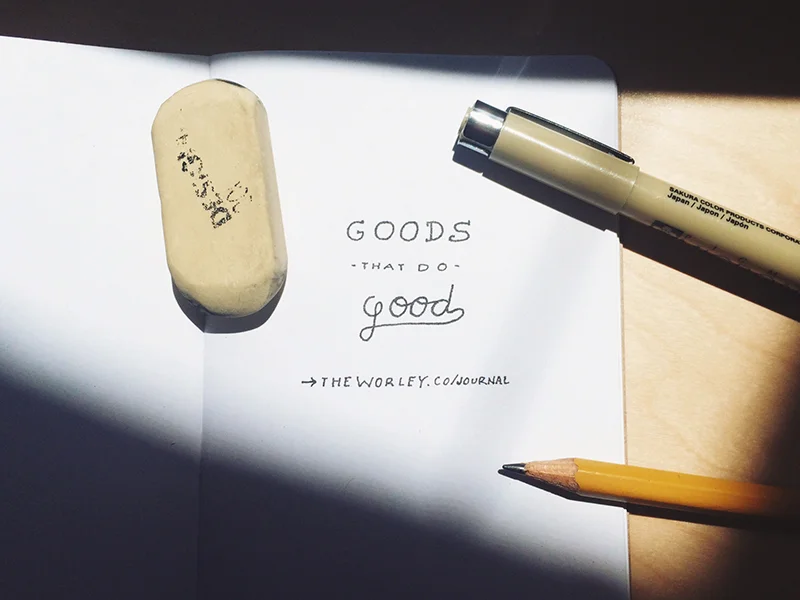 GOODS
-THAT DO-
good
→THEWORLEY.CO/JOURNAL
SAKURA COLOR PRODUCTS
Japan / Japon / Japón